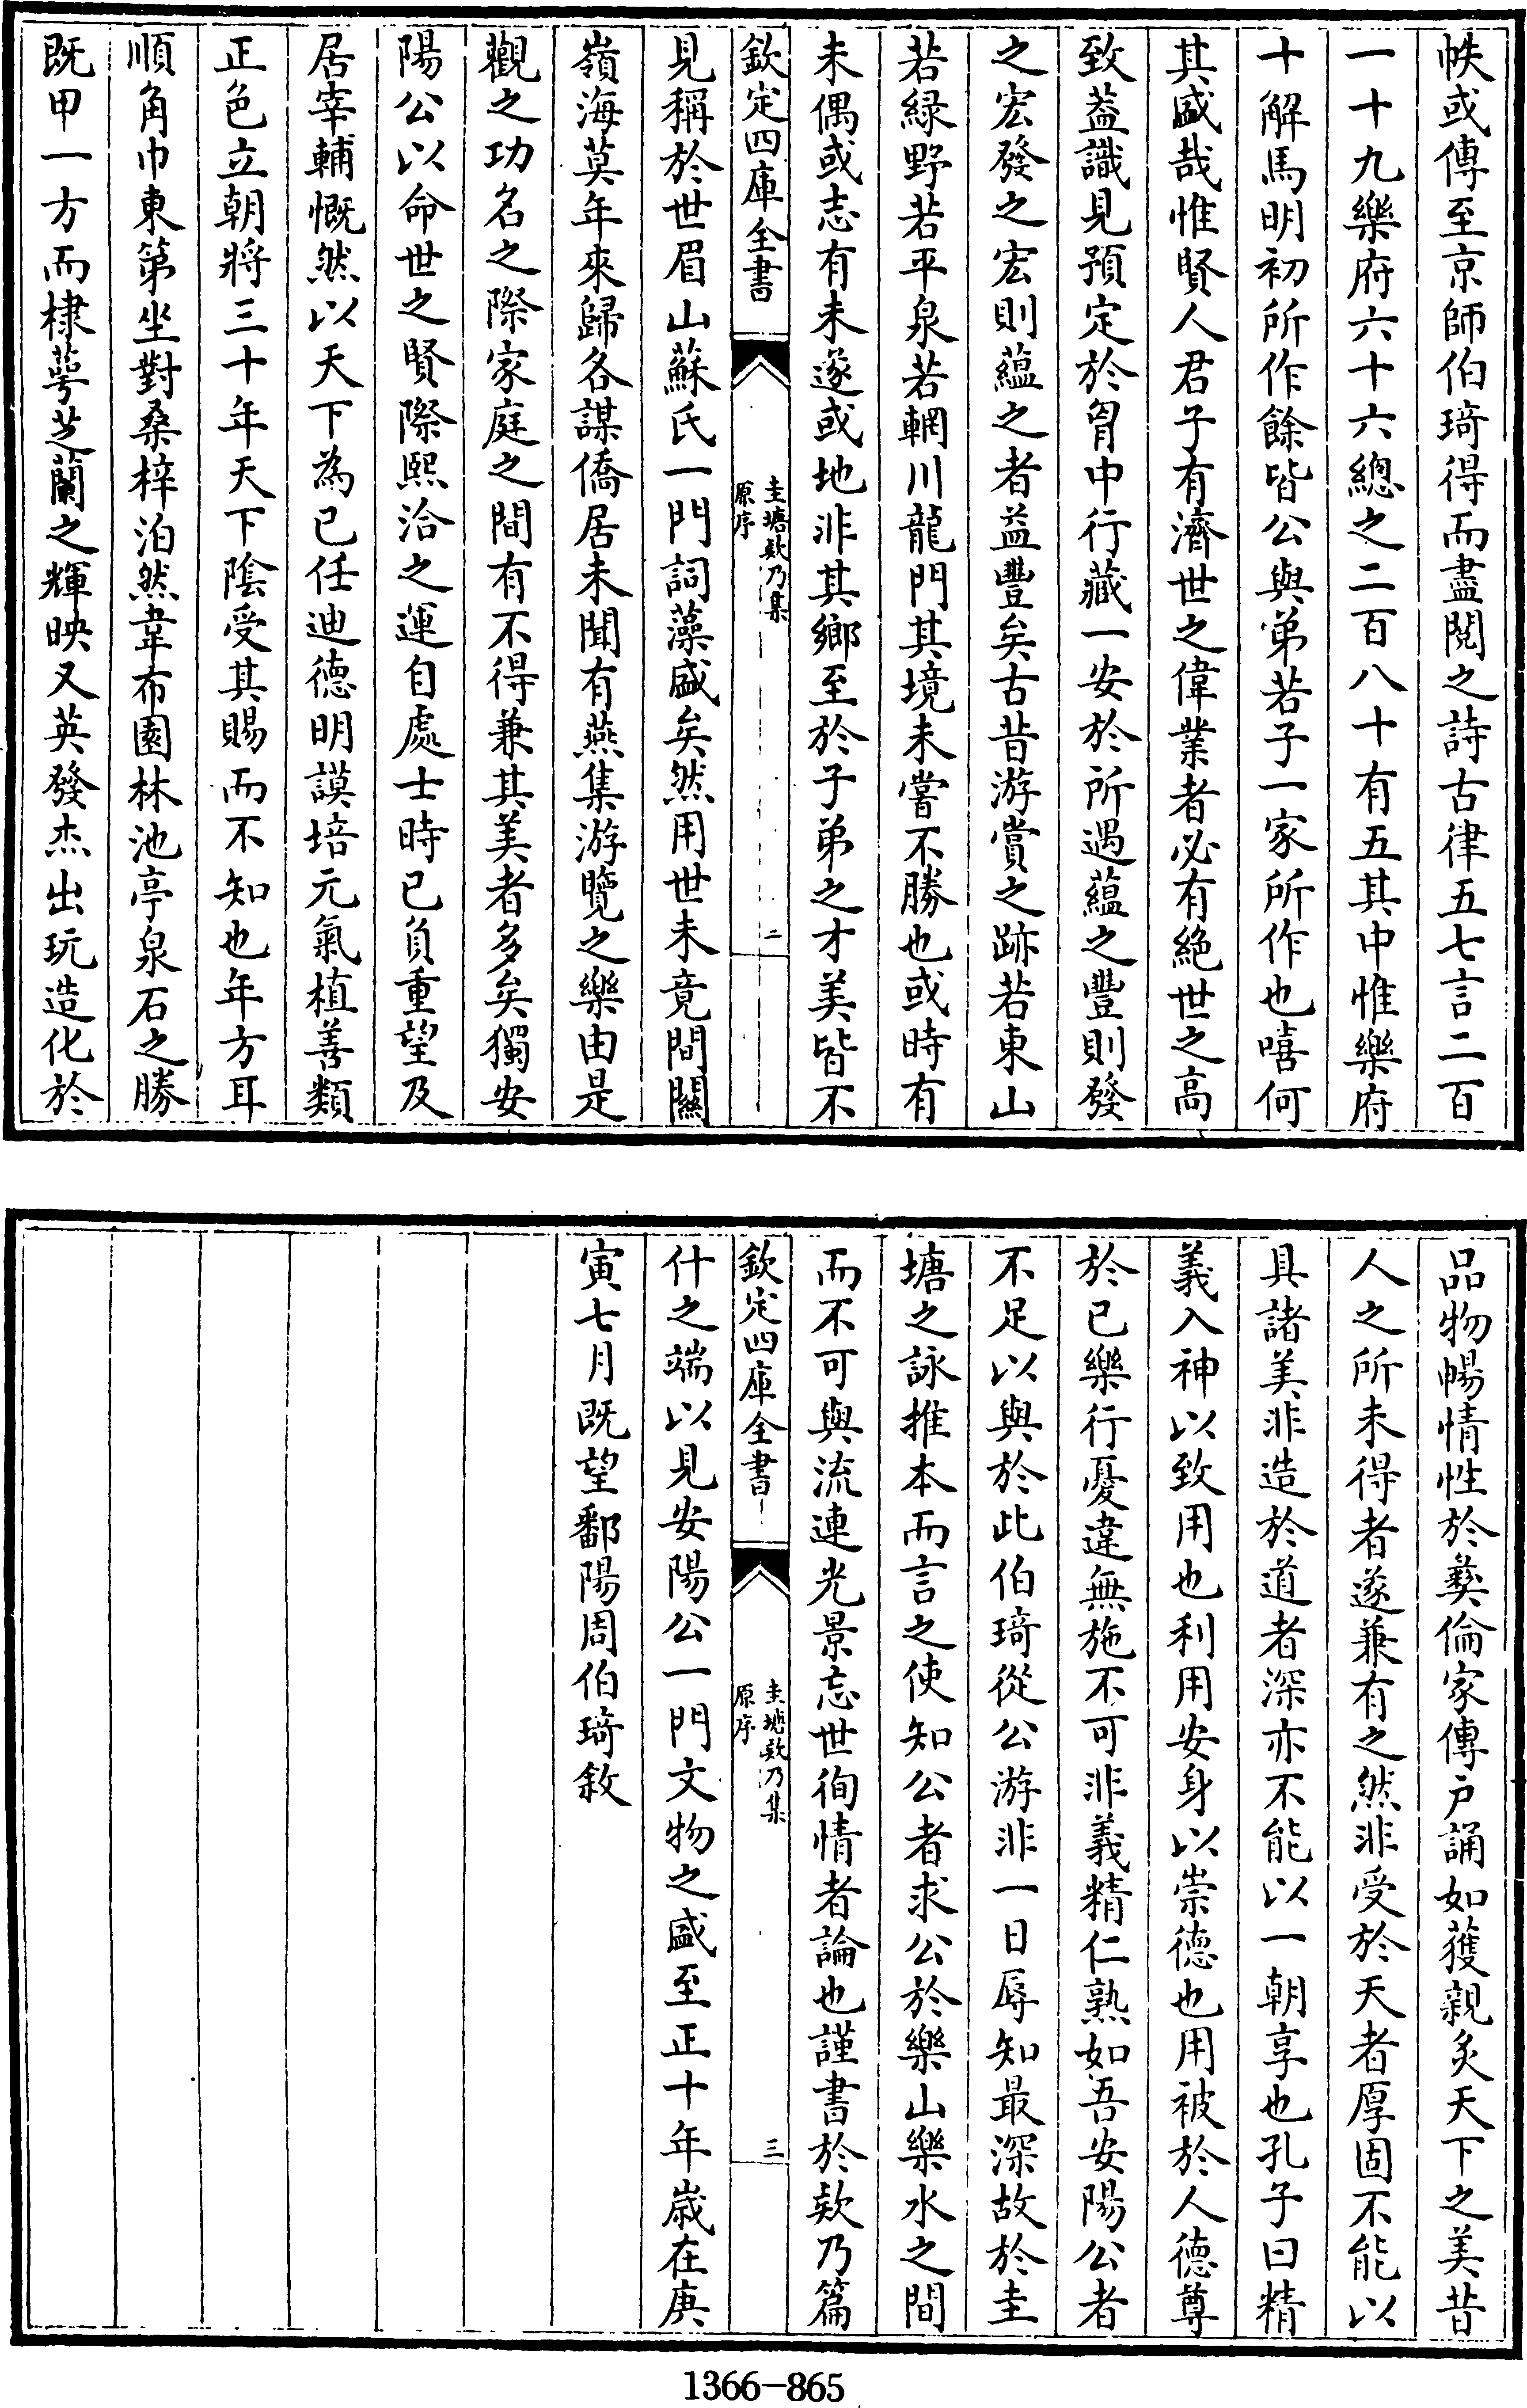 帙或傳至京師伯琦得而盡閱之詩古律五七言二百
一十九樂府六十六總之二百八十有五其中惟樂府
十解馬明初所作餘皆公與弟若子一家所作也嘻何
其盛哉惟賢人君子有濟世之偉業者必有絶世之高
致葢識見預定於胷中行藏一安於所遇蘊之豐則發
之宏發之宏則蘊之者益豐矣古昔游賞之跡若東山
若緑野若平泉若輞川龍門其境未嘗不勝也或時有
未偶或志有未遂或地非其鄉至於子弟之才美皆不
欽定四庫全書
圭塘欵乃集
原序
二
見稱於世眉山蘇氏一門詞藻盛矣然用世未竟間關
嶺海莫年來歸各謀僑居未聞有燕集游覽之樂由是
觀之功名之際家庭之間有不得兼其美者多矣獨安
陽公以命世之賢際熙洽之運自處士時已負重望及
居宰輔慨然以天下為已任迪德明謨培元氣植善類
正色立朝將三十年天下隂受其賜而不知也年方耳
順角巾東第坐對桑梓泊然韋布園林池亭泉石之勝
既甲一方而棣萼芝蘭之輝映又英發杰出玩造化於
品物暢情性於彜倫家傳户誦如獲親炙天下之美昔
人之所未得者遂兼有之然非受於天者厚固不能以
具諸美非造於道者深亦不能以一朝享也孔子曰精
義入神以致用也利用安身以崇德也用被於人德尊
於已樂行憂違無施不可非義精仁熟如吾安陽公者
不足以與於此伯琦從公游非一日辱知最深故於圭
塘之詠推本而言之使知公者求公於樂山樂水之間
而不可與流連光景忘世徇情者論也謹書於欵乃篇
欽定四庫全書
圭塘欵乃集
原序
三
什之端以見安陽公一門文物之盛至正十年歲在庚
寅七月既望鄱陽周伯琦敘
1366-865